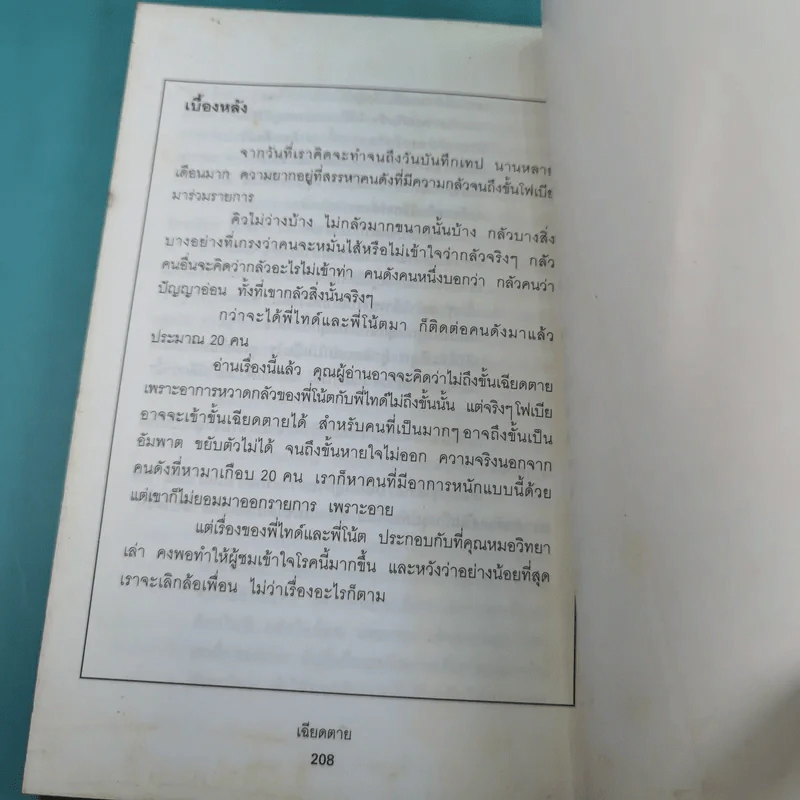 เบื้องหลัง
จากวันที่เราคิดจะทำจนถึงวันบันทึกเทป นานหลาย
เดือนมาก ความยากอยู่ที่สรรหาคนดังที่มีความกลัวจนถึงขั้นโฟเบีย
มาร่วมรายการ
คิวไม่ว่างบ้าง ไม่กลัวมากขนาดนั้นบ้าง กลัวบางสิ่ง
บางอย่างที่เกรงว่าคนจะหมั่นไส้หรือไม่เข้าใจว่ากลัวจริงๆ กลัว
คนอื่นจะคิดว่ากลัวอะไรไม่เข้าท่า คนดังคนหนึ่งบอกว่า กลัวคนว่า
ปัญญาอ่อน ทั้งที่เขากลัวสิ่งนั้นจริงๆ
กว่าจะได้พี่ไทด์และพี่โน้ตมา ก็ติดต่อคนดังมาแล้ว
ประมาณ 20 คน
อ่านเรื่องนี้แล้ว คุณผู้อ่านอาจจะคิดว่าไม่ถึงขั้นเฉียดตาย
เพราะอาการหวาดกลัวของพี่โน้ตกับพี่ไทด์ไม่ถึงขั้นนั้น แต่จริงๆ โฟเบีย
อาจจะเข้าขั้นเฉียดตายได้ สำหรับคนที่เป็นมากๆ อาจถึงขั้นเป็น
อัมพาต ขยับตัวไม่ได้ จนถึงขั้นหายใจไม่ออก ความจริงนอกจาก
คนดังที่หามาเกือบ 20 คน เราก็หาคนที่มีอาการหนักแบบนี้ด้วย
แต่เขาก็ไม่ยอมมาออกรายการ เพราะอาย
แต่เรื่องของพี่ไทด์และพี่โน้ต ประกอบกับที่คุณหมอวิทยา
เล่า คงพอทำให้ผู้ชมเข้าใจโรคนี้มากขึ้น และหวังว่าอย่างน้อยที่สุด
เราจะเลิกล้อเพื่อน ไม่ว่าเรื่องอะไรก็ตาม
เฉียดตาย
208